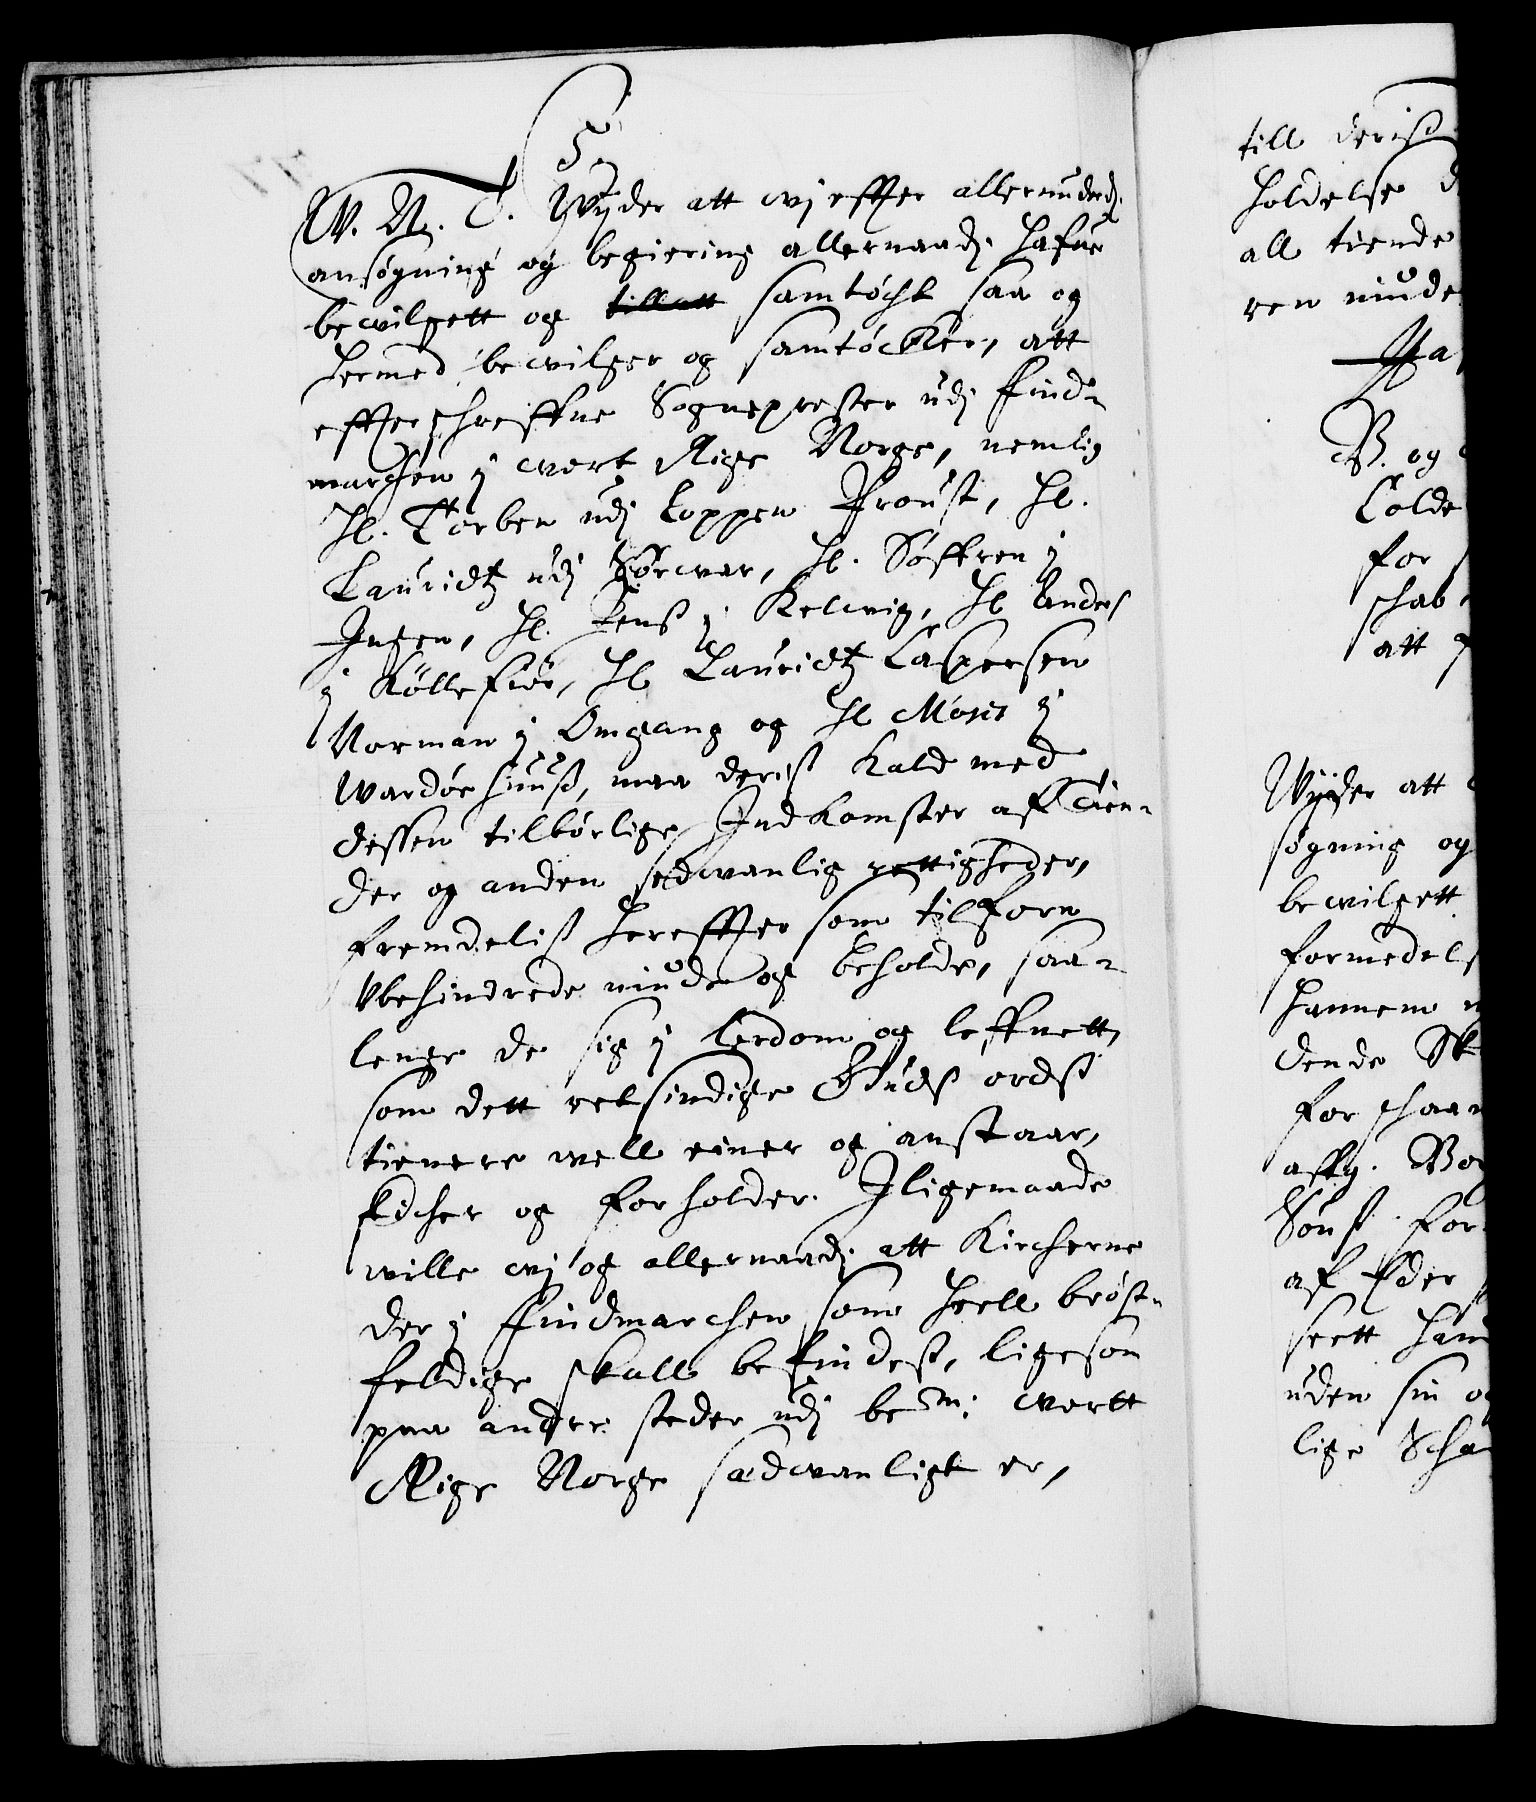 5
W. A. T. Wyder att wj effter allerunderd:
ansøgning og begiering allernaadj: hafue
bewilgett og tillatt samtøcht saa og
hermed bewilger og samtøcker, att
effterschreffne Sogneprester udj Find-
marchen j wort Rige Norge, nemlig
Hl. Torben udj Loppen Proust, Hl.
Lauridtz udj Sørwer, Hl. Søffren j
Ingen, Hl. Jenß j Kelwig, Hl Anders
j Køllefior, Hl Lauridtz Caspersen
Norman j Omgang og Hl Moses j
Wardøehuuß, maa deriß Kald med
dessen tilbørlige Indkomster aff Tien-
der og anden sedwanlig rettigheder,
fremdeliß hereffter som tilforn
Vbehindrede niude og beholde, saa-
lenge de sig j lerdom og leffnett,
som dett retsindige Guds ordß
tienere well eigner og anstaar,
skicher og forholder. Iligemaade
wille wj og allernaadj: att Kircherne
der j Findmarchen som heell brøst-
feldige skall befindeß, ligesom
paa andre steder udj bem: wortt
Rige Norge sædwanligt er,
till deriß
holdelse
all tiende
ren niude
B. og
Colde
for
schab
att
Wyder att
søgning og
bewilgett
formedelß
hannem
dende
for schaar
affg.
Sønß for
af Eder
sett ham
uden sin
lige Scha